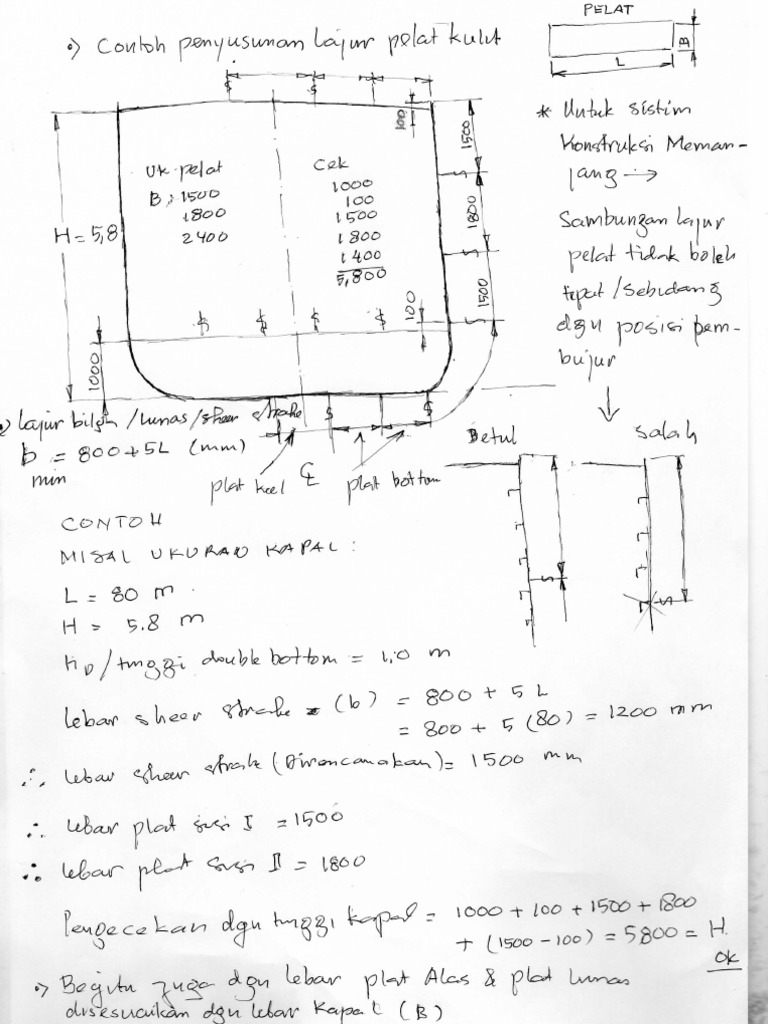 PELAT
•) Contoh penyusunan lajur pelat kulit
B
L
100
1500
* Untuk sistim
Konstruksi Meman-
jang →
Uk. pelat
B; 1500
1800
2400
Cek
1000
100
1500
1800
1400
5,800
H = 5,8
1800
Sambungan lajur
pelat tidak boleh
tepat/sebidang
dgn posisi pem-
bujur
100
1500
1000
•) Lajur bilga/lunas/sheer strake
b = 800+5L (mm)
min
plat keel
CL
plat bottom
Betul
Salah
CONTOH
MISAL UKURAN KAPAL:
L = 80 m.
H = 5.8 m
HD/tinggi double bottom = 1,0 m
lebar sheer strake = (b) = 800 + 5L
= 800 + 5 (80) = 1200 mm
∴ lebar sheer strake (Direncanakan) = 1500 mm
∴ lebar plat sisi I = 1500
∴ lebar plat sisi II = 1800
Pengecekan dgn tinggi kapal = 1000 + 100 + 1500 + 1800
+ (1500 - 100) = 5800 = H.
Ok
•) Begitu juga dgn lebar plat Alas & plat lunas
disesuaikan dgn lebar Kapal (B)